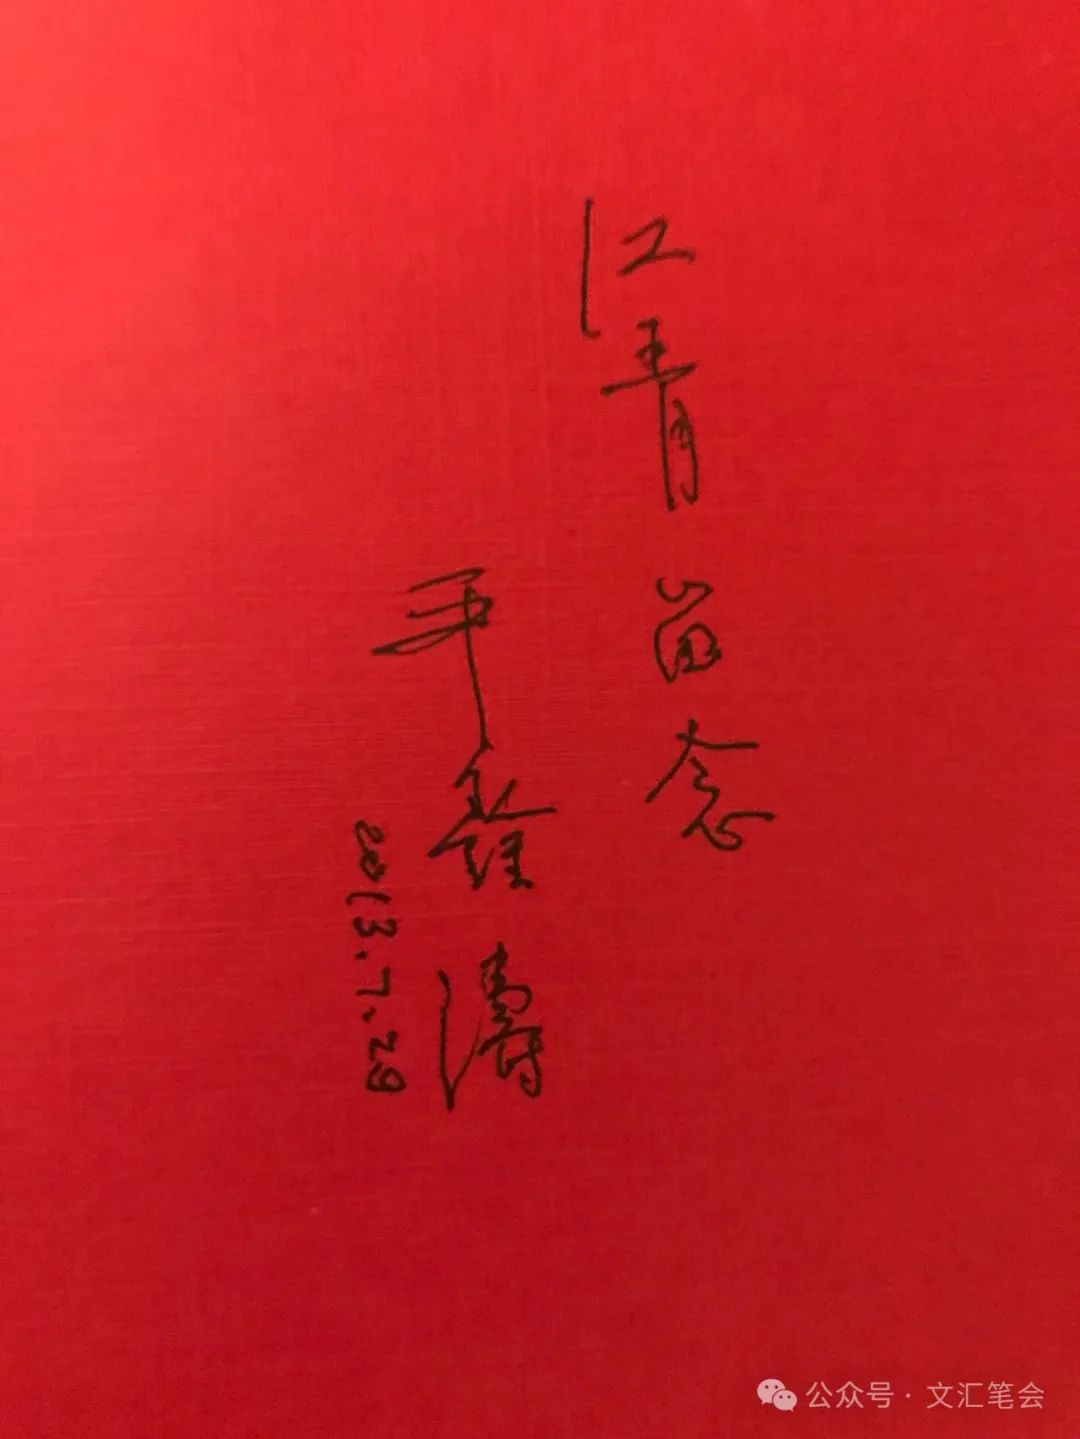 江青留念
平鑫濤
2013.7.29
公众号·文汇笔会